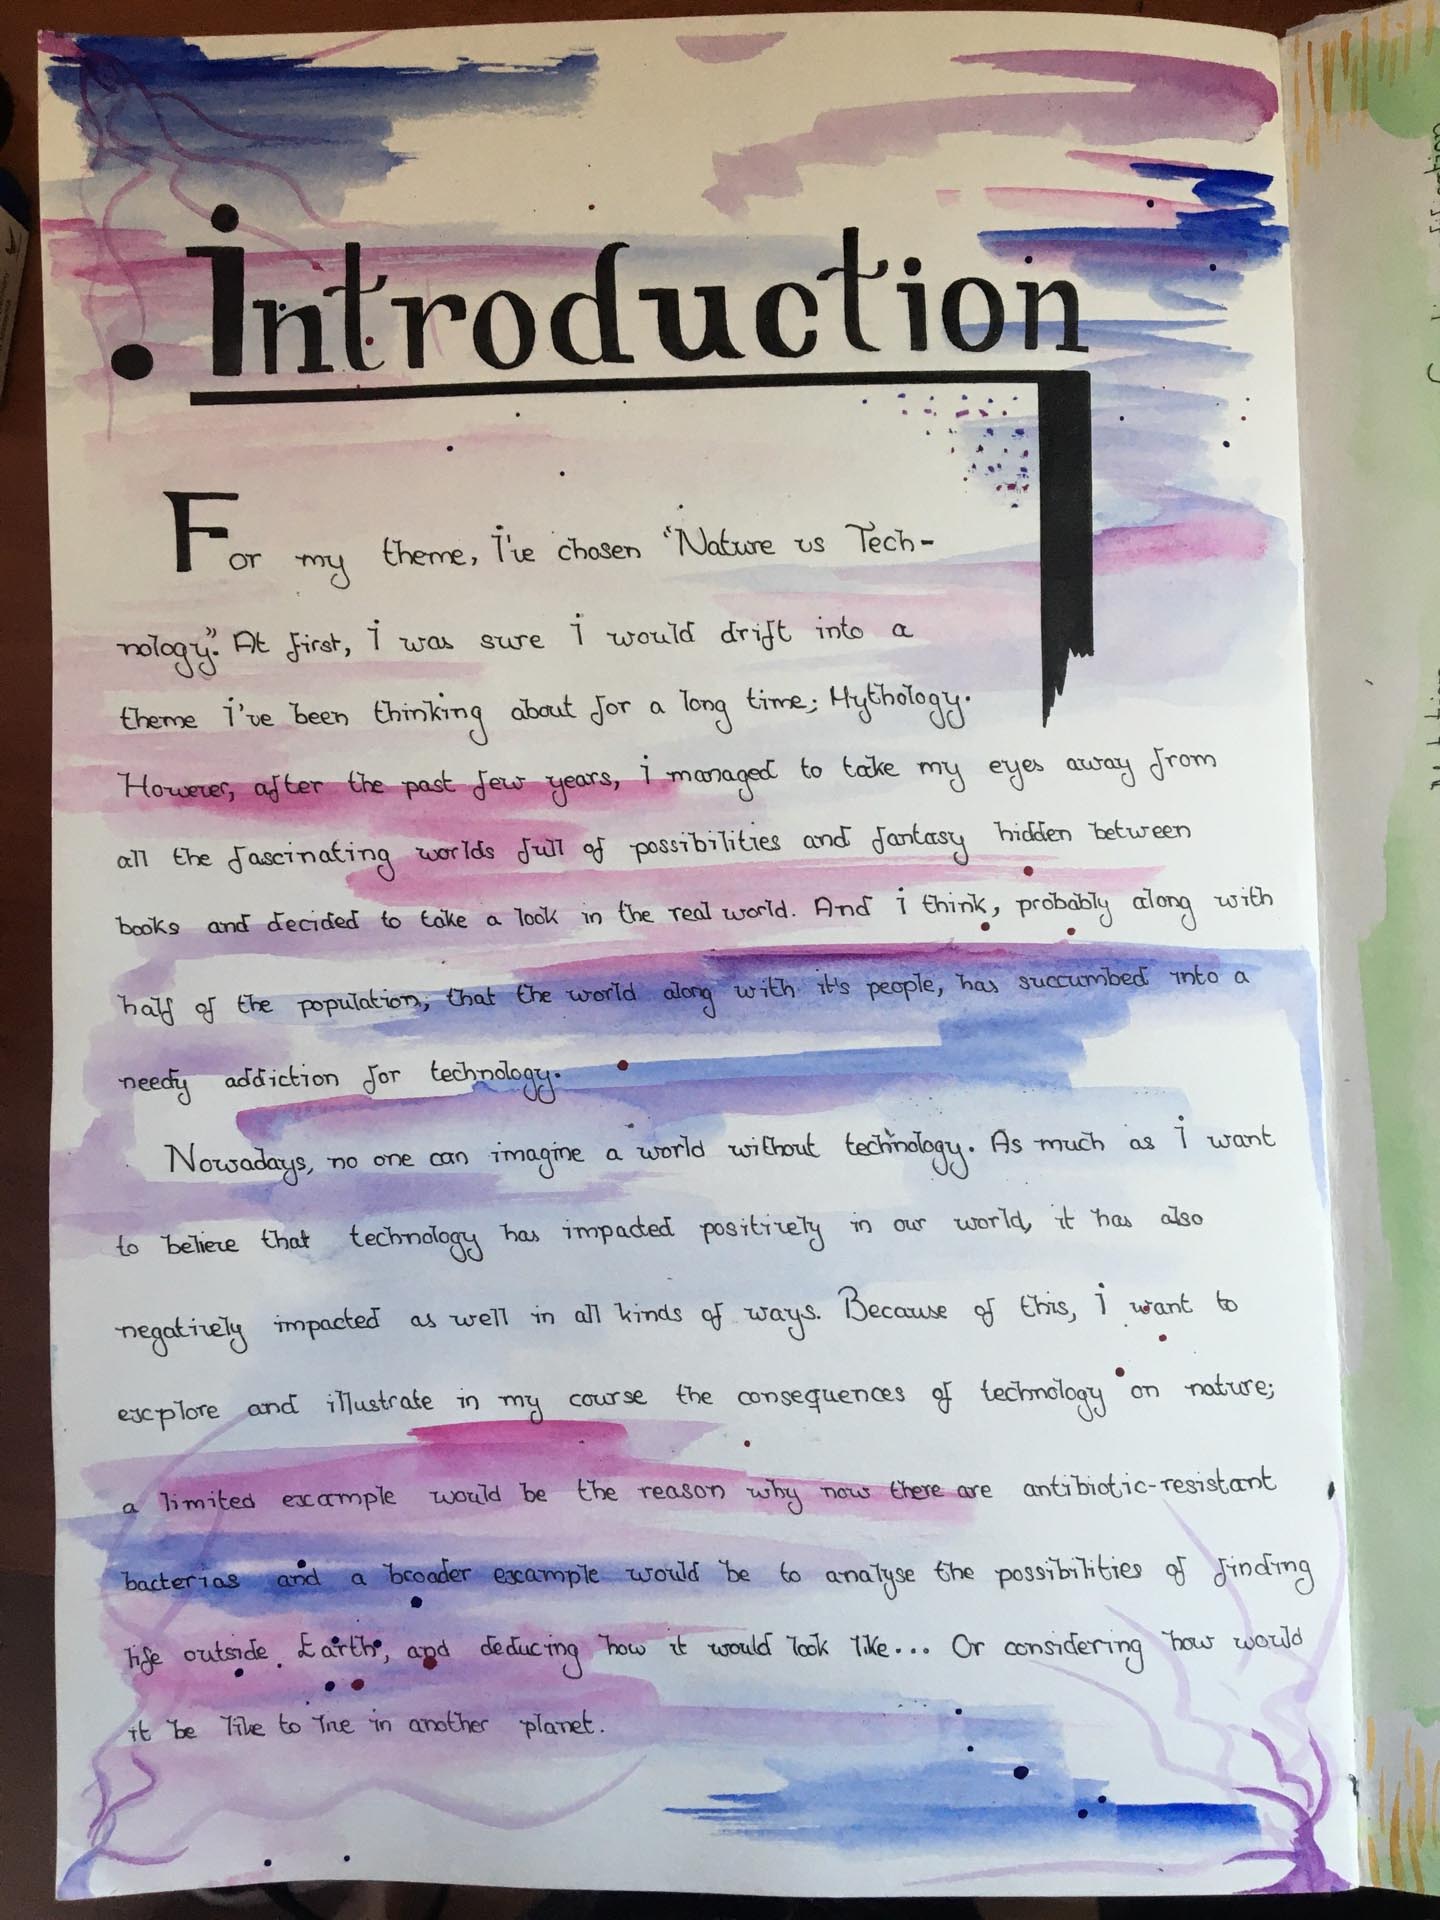 .Introduction
For my theme, I've chosen "Nature vs Tech-
nology". At first, i was sure i would drift into a
theme i've been thinking about for a long time; Mythology.
However, after the past few years, i managed to take my eyes away from
all the fascinating worlds full of possibilities and fantasy hidden between
books and decided to take a look in the real world. And i think, probably along with
half of the population, that the world along with it's people, has succumbed into a
needy addiction for technology.
Nowadays, no one can imagine a world without technology. As much as i want
to believe that technology has impacted positively in our world, it has also
negatively impacted as well in all kinds of ways. Because of this, i want to
explore and illustrate in my course the consequences of technology on nature;
a limited example would be the reason why now there are antibiotic-resistant
bacterias and a broader example would be to analyse the possibilities of finding
life outside Earth, and deducing how it would look like... Or considering how would
it be like to live in another planet.